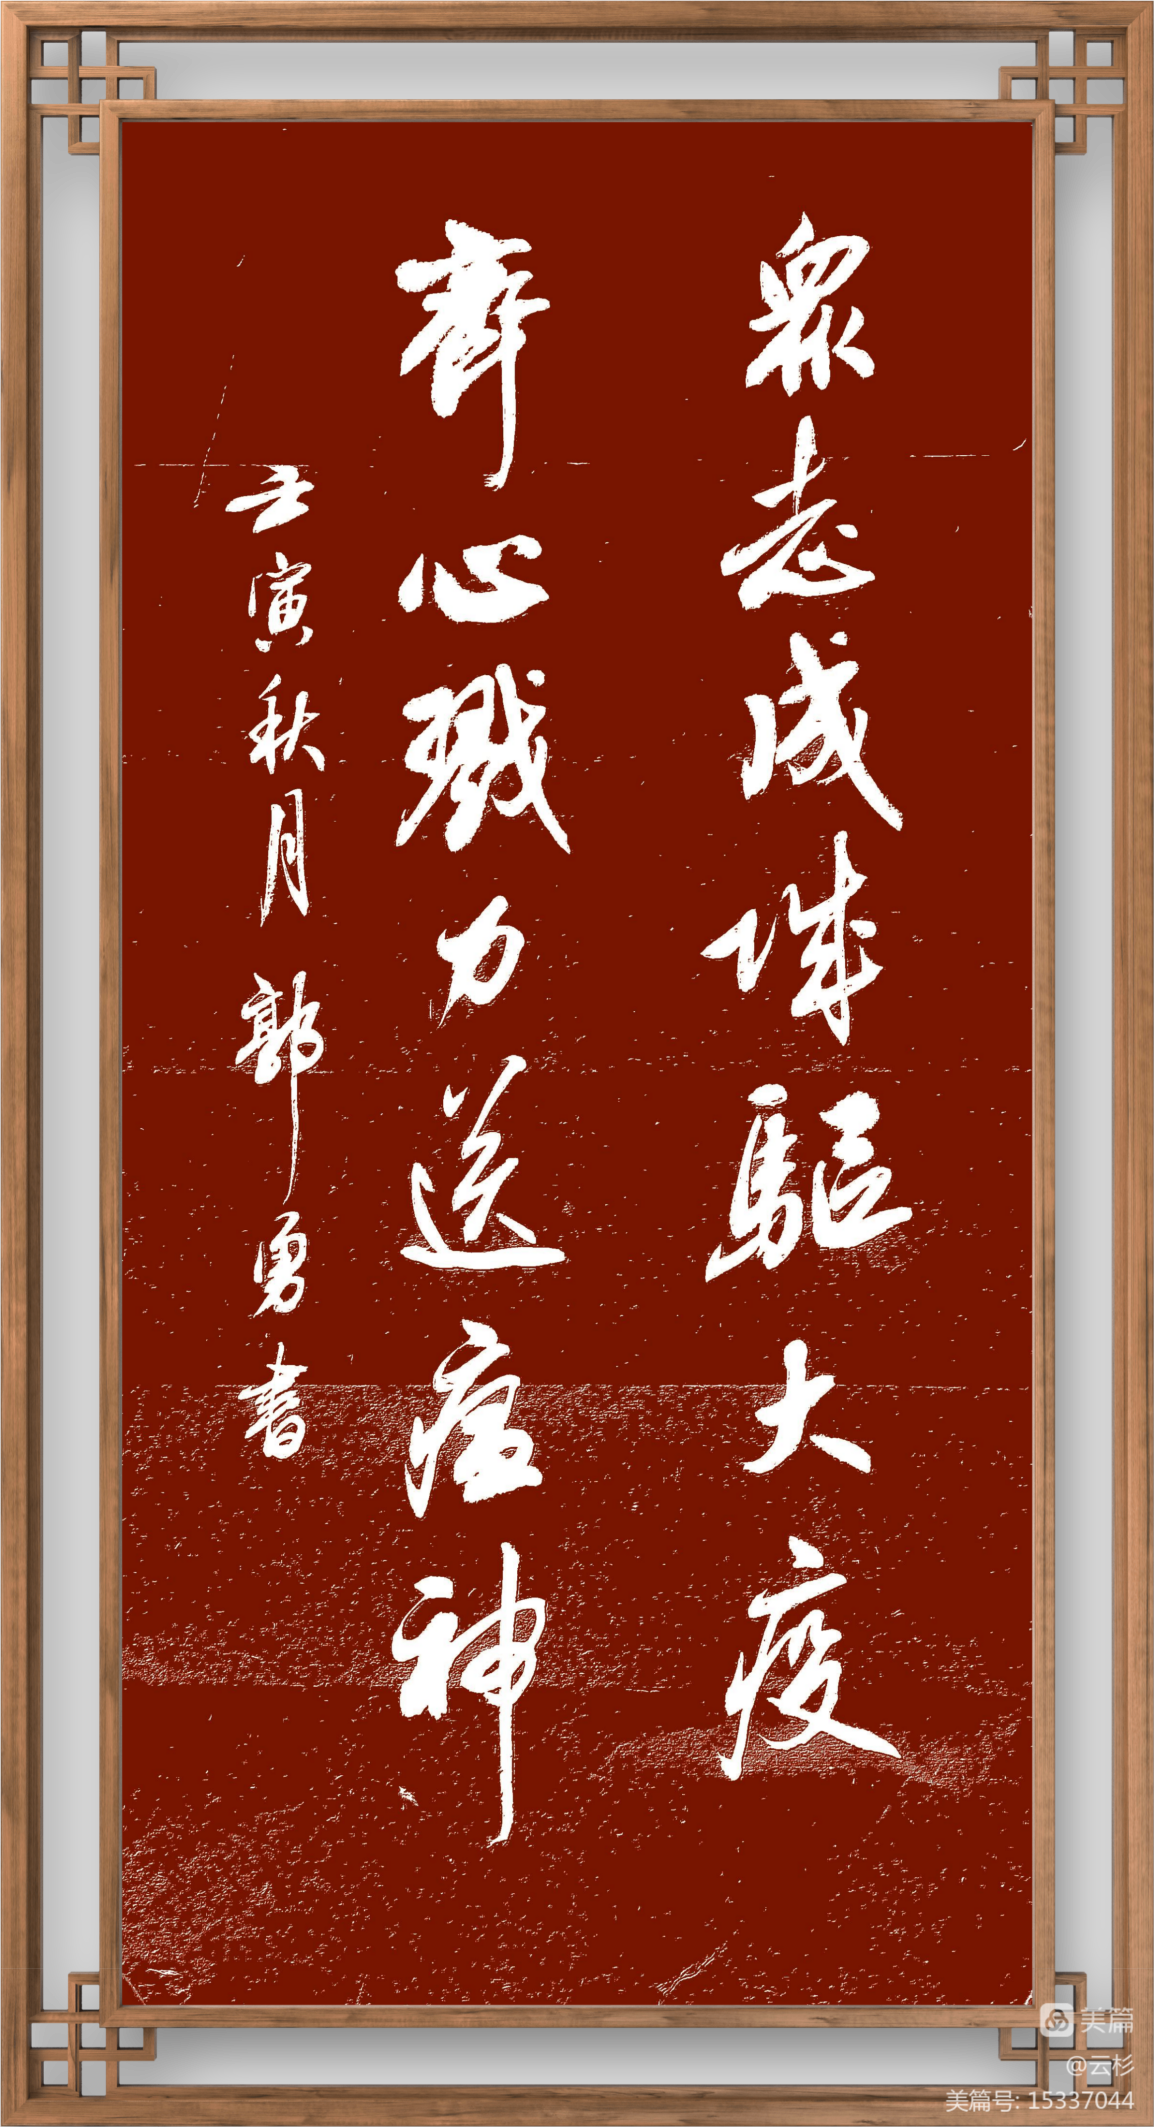 眾志成城驅大疫
齊心戮力送瘟神
壬寅秋月 郭勇書
美篇
@云杉
美篇号: 15337044